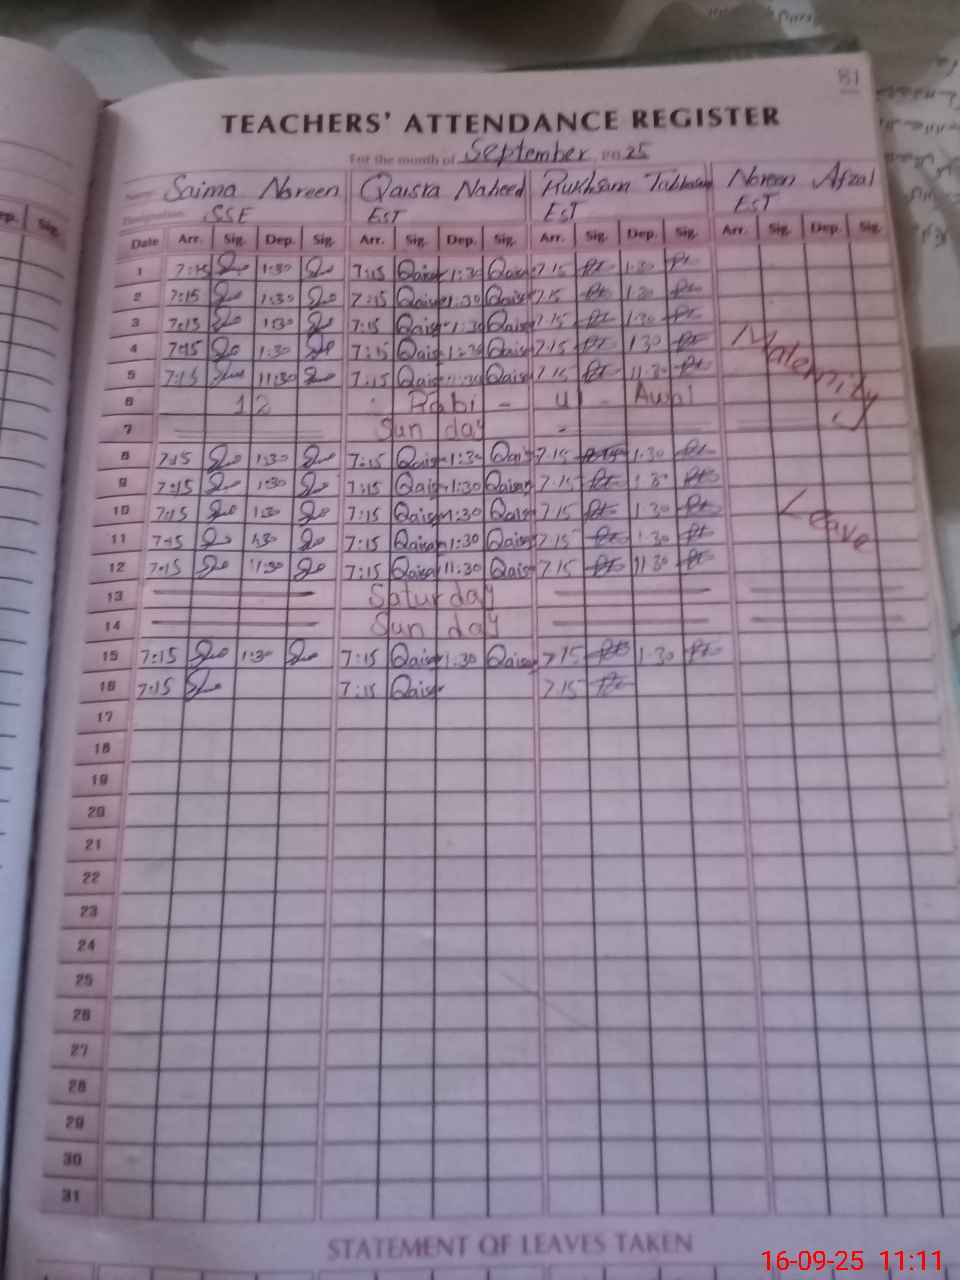 81
TEACHERS' ATTENDANCE REGISTER
For the month of September 2025
Name Saima Noreen Qaisra Naheed Rukhsana Noreen Afzal
Designation SSE EST EST EST
Date Arr. Sig. Dep. Sig. Arr. Sig. Dep. Sig. Arr. Sig. Dep. Sig. Arr. Sig. Dep. Sig.
1 7:15 1:30 7:15 Qaisra 1:30 Qaisra 7:15 1:30
2 7:15 1:30 7:15 Qaisra 1:30 Qaisra 7:15 1:30
3 7:15 1:30 7:15 Qaisra 1:30 Qaisra 7:15 1:30
4 7:15 1:30 7:15 Qaisra 1:30 Qaisra 7:15 1:30 Maternity
5 7:15 11:30 7:15 Qaisra 11:30 Qaisra 7:15 11:30
6 12 Rabi - ul - Awal
7 Sunday
8 7:15 1:30 7:15 Qaisra 1:30 Qaisra 7:15 1:30
9 7:15 1:30 7:15 Qaisra 1:30 Qaisra 7:15 1:30
10 7:15 1:30 7:15 Qaisra 1:30 Qaisra 7:15 1:30 Leave
11 7:15 1:30 7:15 Qaisra 1:30 Qaisra 7:15 1:30
12 7:15 11:30 7:15 Qaisra 11:30 Qaisra 7:15 11:30
13 Saturday
14 Sunday
15 7:15 1:30 7:15 Qaisra 1:30 Qaisra 7:15 1:30
16 7:15 7:15 Qaisra 7:15
17
18
19
20
21
22
23
24
25
26
27
28
29
30
31
STATEMENT OF LEAVES TAKEN
16-09-25 11:11